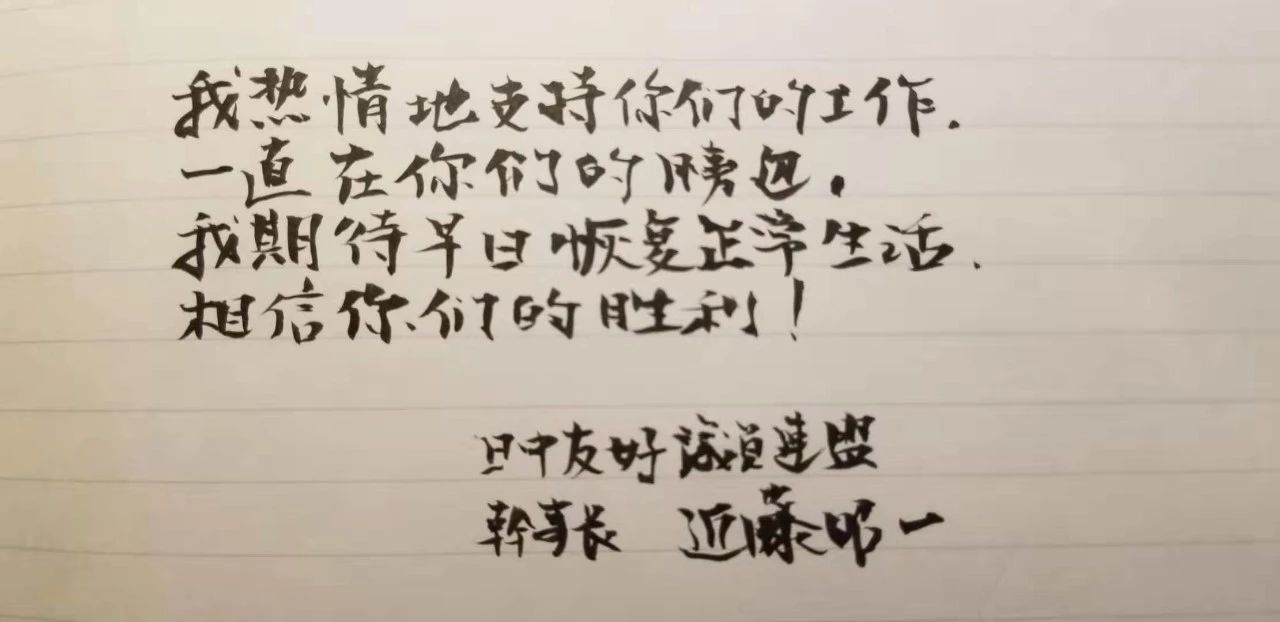 我热情地支持你们的工作.
一直在你们的膀边.
我期待早日恢复正常生活.
相信你们的胜利!
日中友好議員連盟
幹事長 近藤昭一